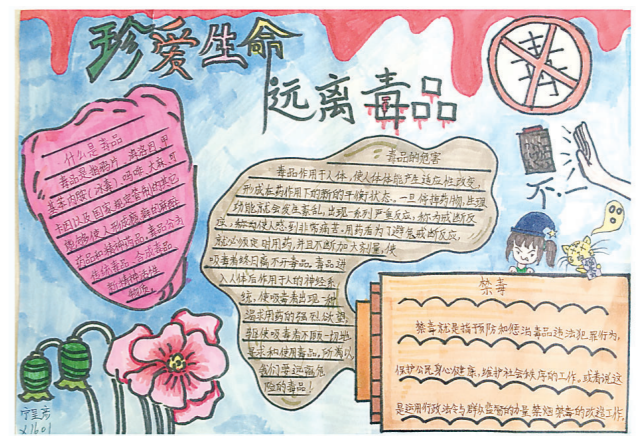 珍爱生命
远离毒品
毒
不!
什么是毒品
毒品是指鸦片、海洛因、甲
基苯丙胺(冰毒)、吗啡、大麻、可
卡因以及国家规定管制的其它
能够使人形成瘾癖的麻醉
药品和精神药品。毒品分为
传统毒品、合成毒品、
新精神活性
物质。
毒品的危害
毒品作用于人体,使人体体能产生适应性改变,
形成在药物作用下的新的平衡状态。一旦停掉药物,生理
功能就会发生紊乱,出现一系列严重反应,称为戒断反
应,
使人感到非常痛苦。用药者为了避免戒断反应,
就必须定时用药,并且不断加大剂量,使
吸毒者终日离不开毒品。毒品进
入人体后作用于人的神经系
统,使吸毒者出现一种
渴求用药的强烈欲望,
驱使吸毒者不顾一切地
寻求和使用毒品。所以
我们要远离危
险的毒品!
禁毒
禁毒就是指预防和惩治毒品违法犯罪行为,
保护公民身心健康,维护社会秩序的工作。或者说这
是运用行政法令与群众监督的力量禁绝烟毒的改造工作。